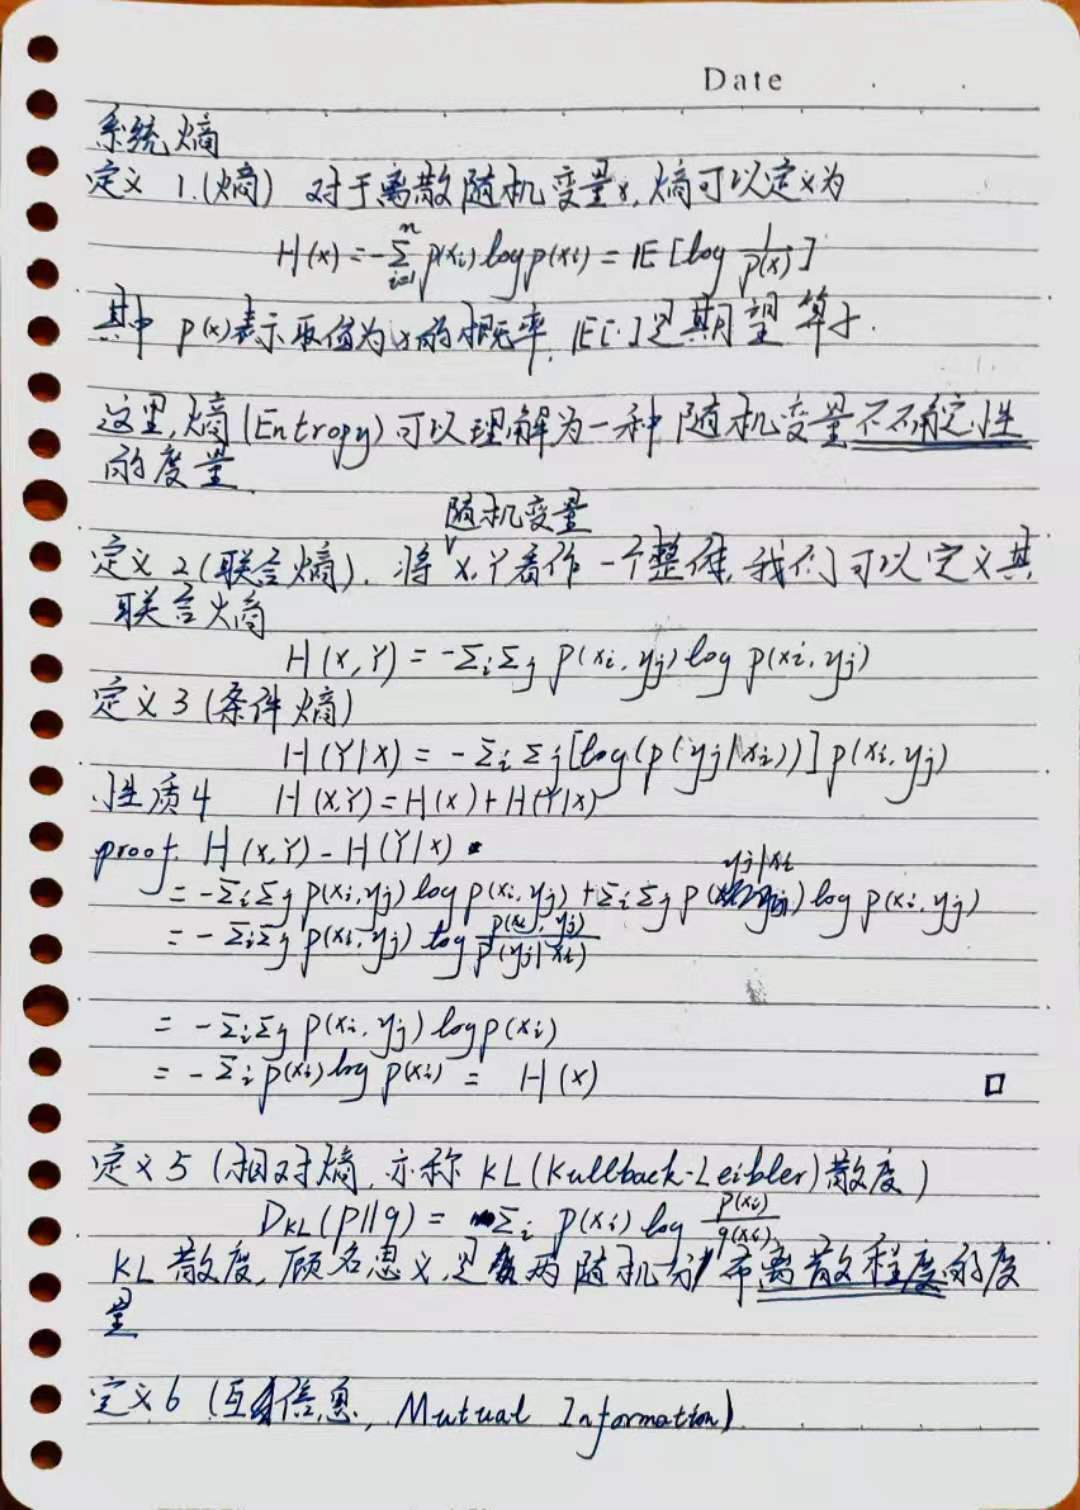 Date
系统熵
定义 1.(熵) 对于离散随机变量x,熵可以定义为
H(x)=-∑_{i=1}^{n} p(xi) log p(xi) = IE [log 1/p(x)]
其中 p(x)表示取值为x的概率. IE[·]是期望算子.
这里,熵(Entropy)可以理解为一种随机变量不不确定性
的度量.
随机变量
定义 2 (联合熵). 将 X,Y看作一个整体,我们可以定义其
联合熵
H(X,Y) = -Σi Σj p(xi,yj) log p(xi,yj)
定义 3 (条件熵)
H(Y|X) = -Σi Σj [log(p(yj|xi))] p(xi,yj)
性质4 H(X,Y)=H(x)+H(Y|X)
proof. H(X,Y)-H(Y|X)
yj|xi
= -Σi Σj p(xi,yj) log p(xi,yj) + Σi Σj p() log p(xi,yj)
= -Σi Σj p(xi,yj) log p(xi,yj)/p(yj|xi)
= -Σi Σj p(xi,yj) log p(xi)
= -Σi p(xi) log p(xi) = H(x)
□
定义 5 (相对熵,亦称 KL(Kullback-Leibler)散度)
DKL(p||q) = Σi p(xi) log p(xi)/q(xi)
KL 散度,顾名思义,是两随机分布离散程度的度
量
定义 6 (互信息, Mutual Information)